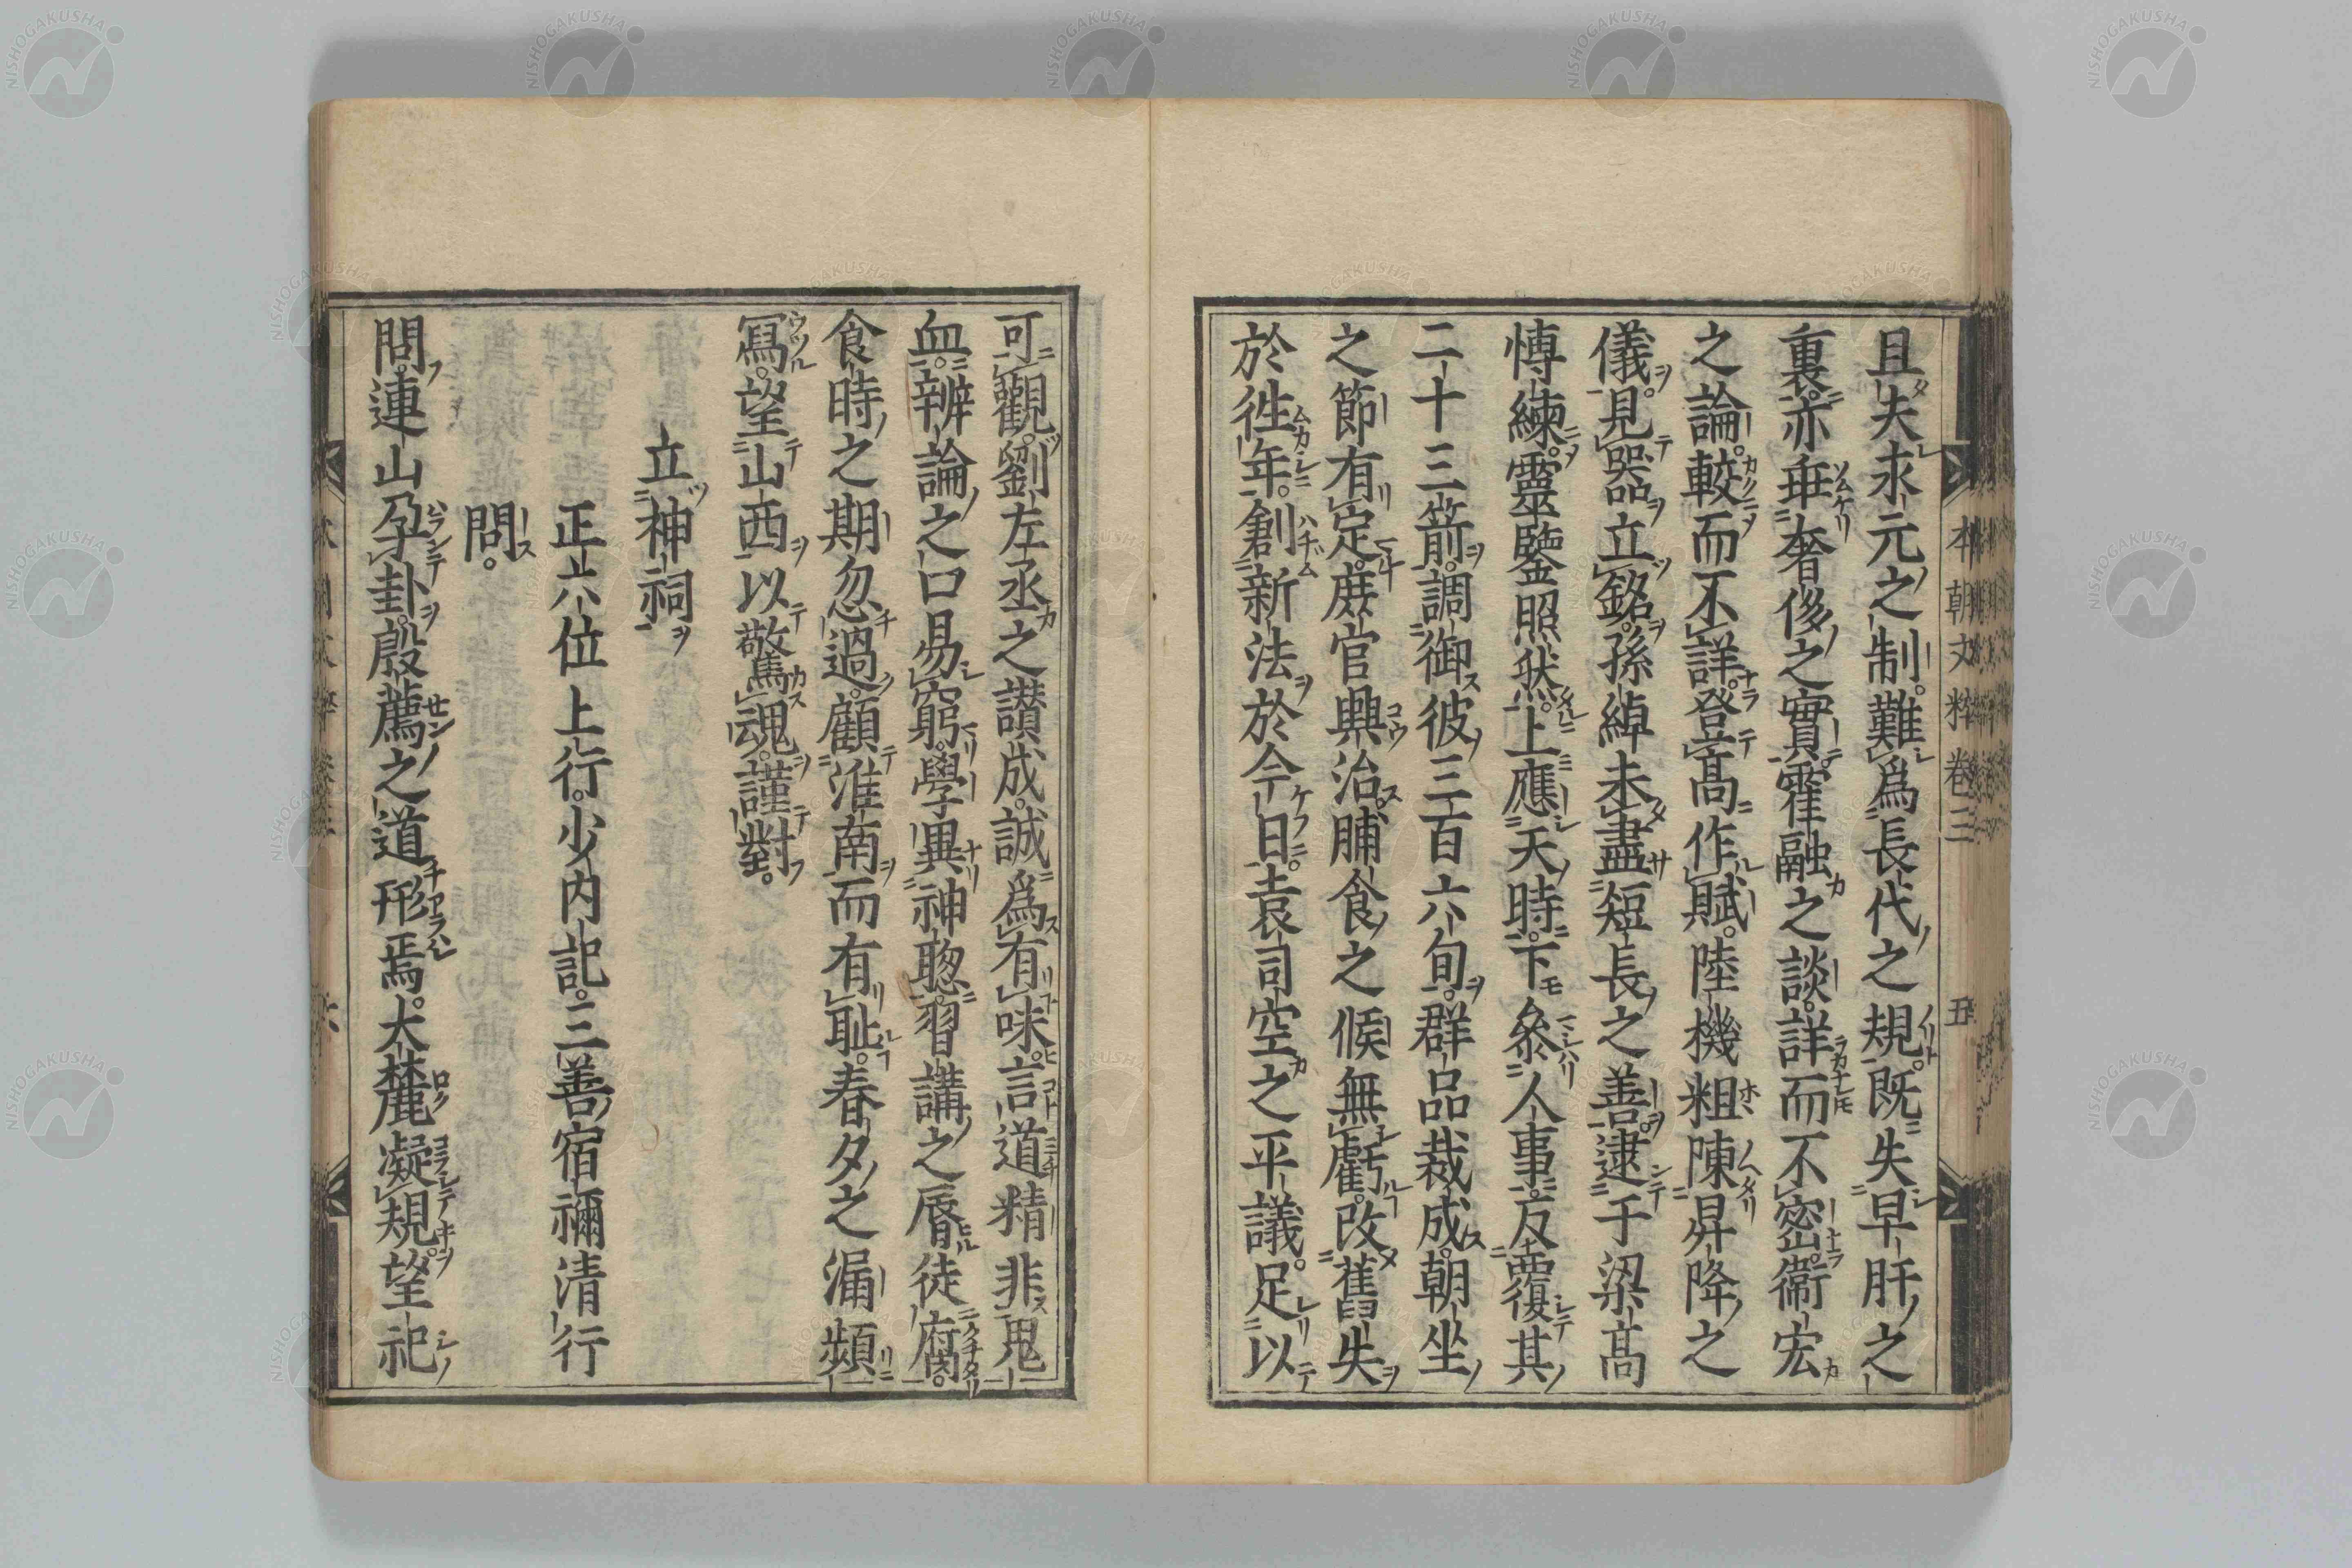 且失求元之制。難爲長代之規。既失早肝之
裏。亦乖奢侈之實。霍融之談。詳而不密。衞宏
之論。較而不詳。登高作賦。陸機粗陳昇降之
儀。見器立銘。孫綽未盡短長之善。逮于梁高
愽練。靈鑒照然。上應天時。下叅人事。反覆其
二十三箭。調御彼三百六旬。群品裁成。朝坐
之節有定。庶官興治。脯食之候無虧。改舊失
於徃年。創新法於今日。袁司空之平議。足以
可觀。劉左丞之讃成。誠爲有味。言道精非鬼
血。辨論之口易窮。學異神聦。習講之脣徒腐。
食時之期忽過。顧淮南而有耻。春夕之漏頻
寫。望山西以驚魂。謹對。
立神祠
正六位上行。少内記。三善宿禰清行
問。
問。連山孕卦。殷薦之道形焉。大麓凝規。望祀
本朝文粹卷三 五